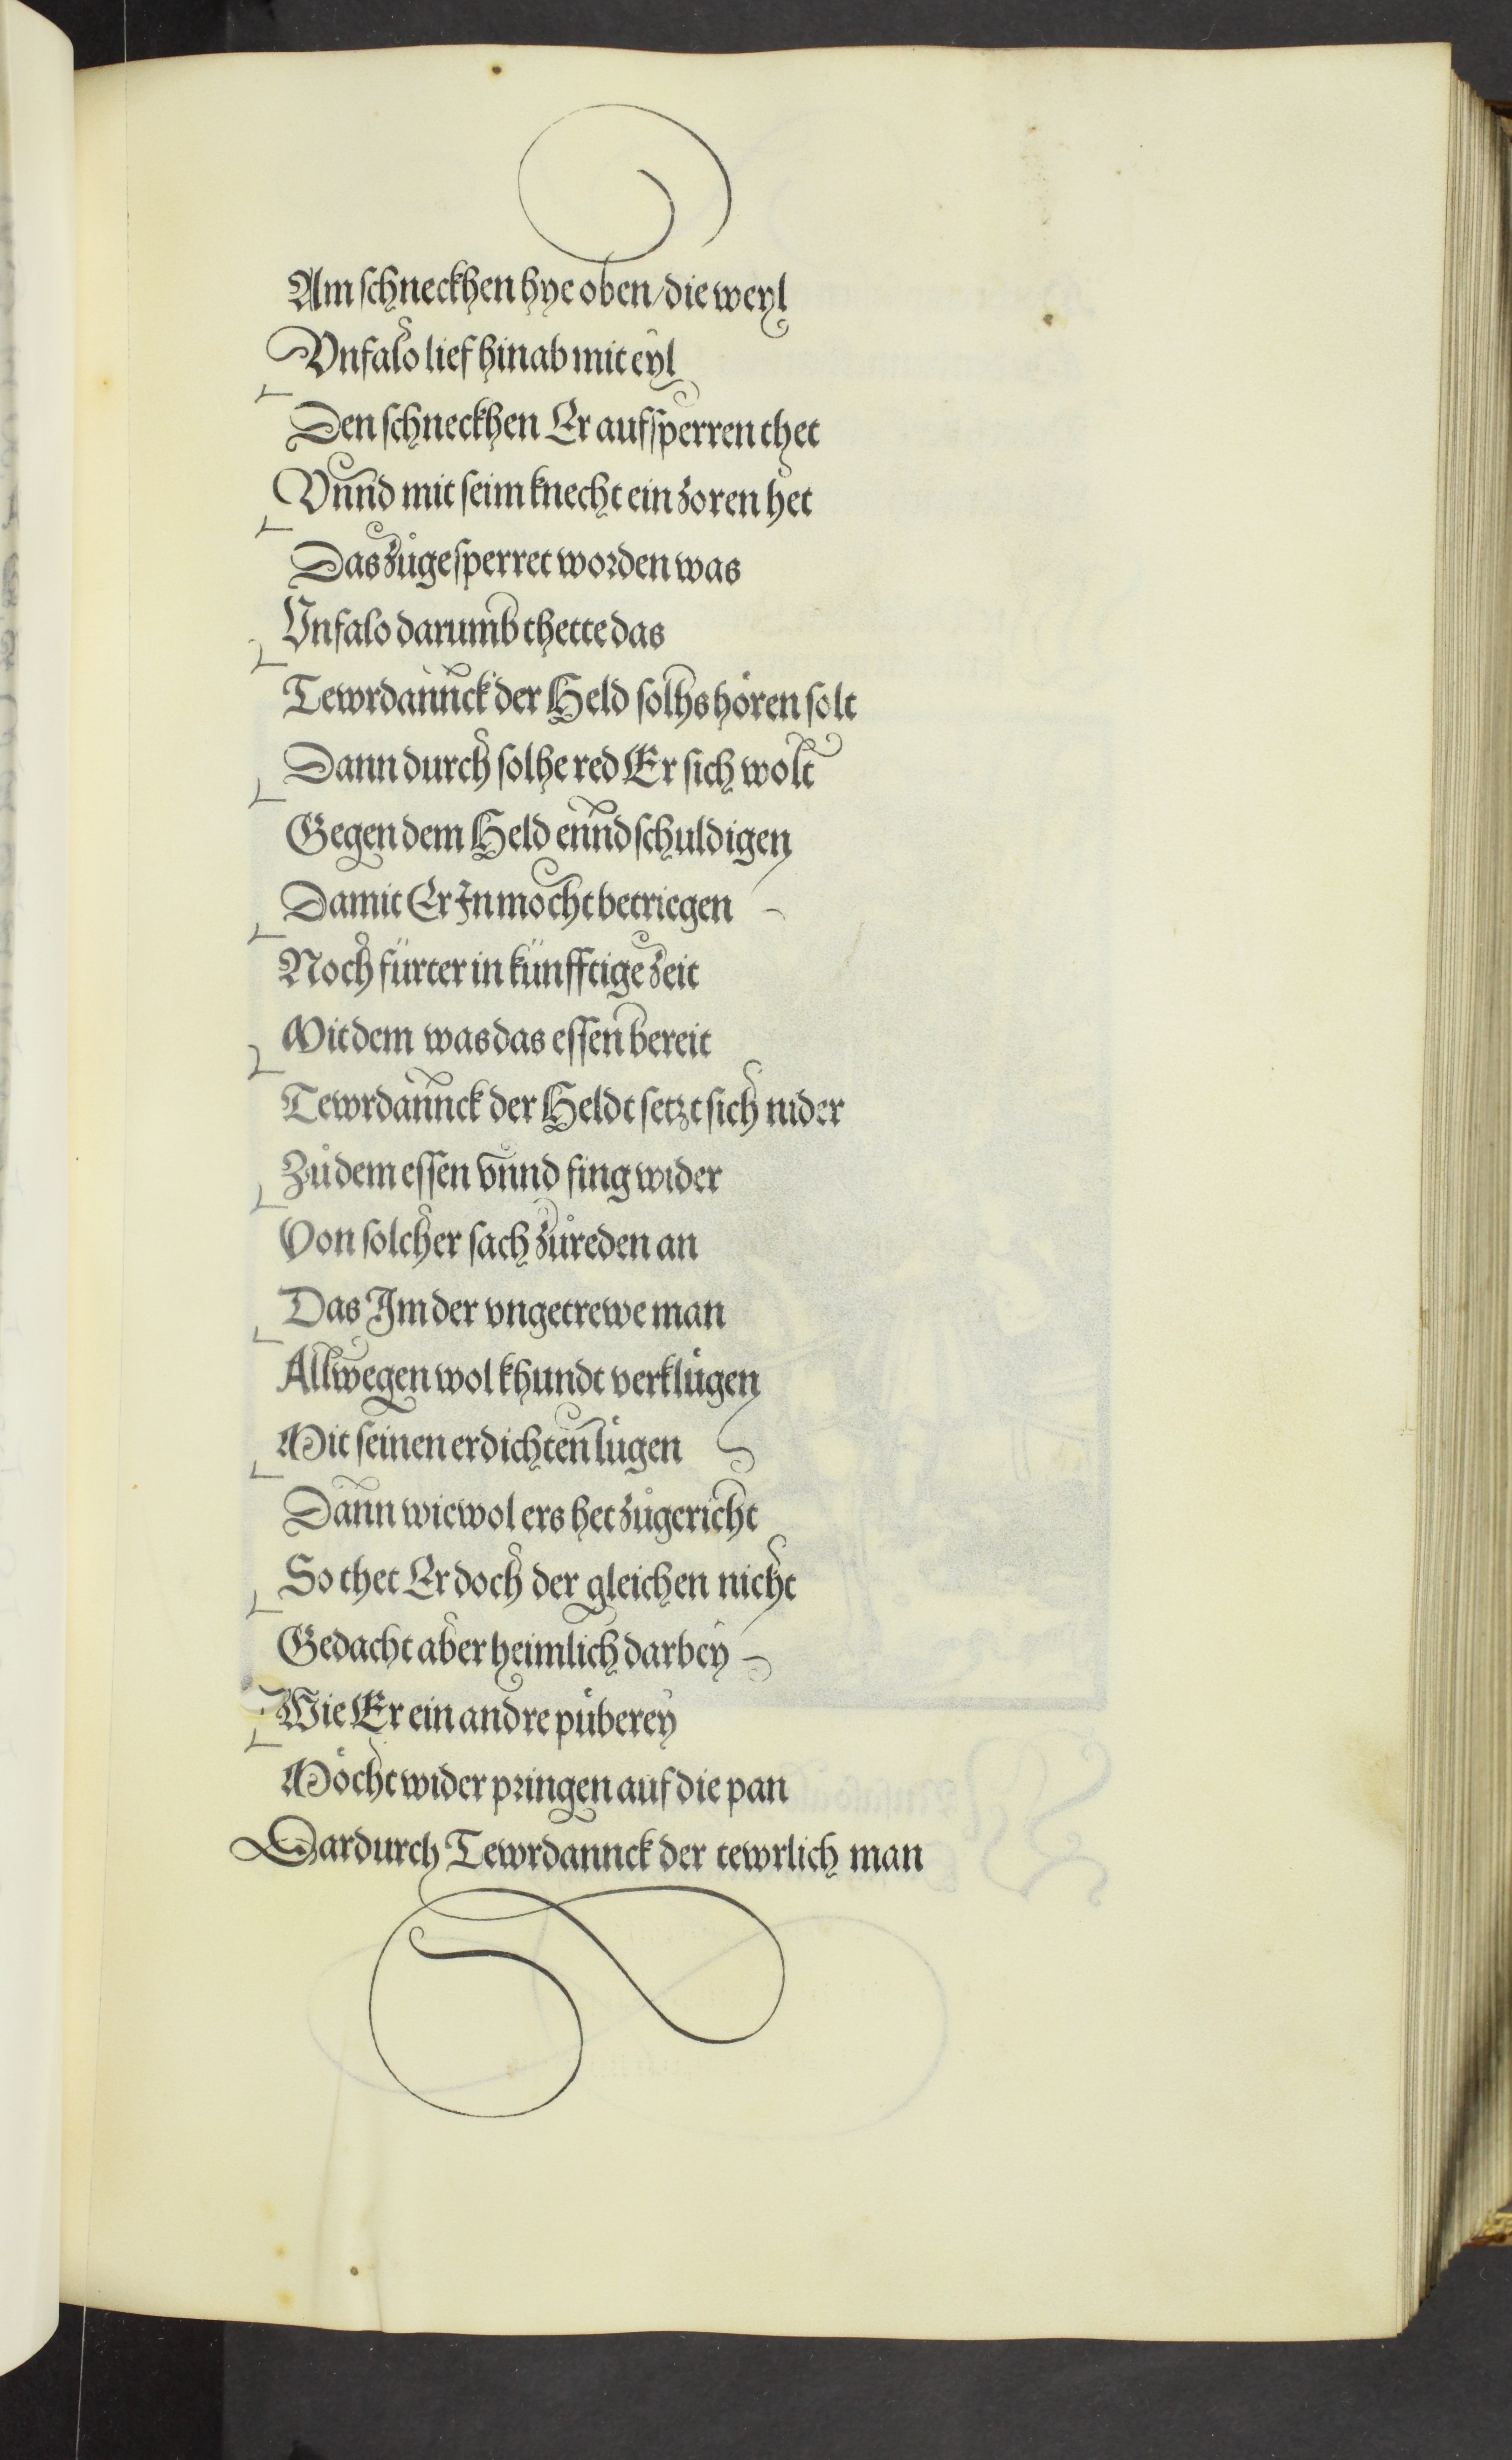 Am schneckhen hye oben/die weyl
Vnfalo lief hinab mit eyl
Den schneckhen Er aufsperren thet
Vnnd mit seim knecht ein zoren het
Das zůgesperret worden was
Vnfalo darumb thette das
Tewrdannck der Held solhs hören solt
Dann durch solhe red Er sich wolt
Gegen dem Held enndschuldigen
Damit Er In mocht betriegen
Noch fürter in künfftige zeit
Mit dem was das essen bereit
Tewrdannck der Heldt setzt sich nider
Zů dem essen vnnd fing wider
Von solcher sach zůreden an
Das Im der vngetrewe man
Allwegen wol khundt verklůgen
Mit seinen erdichten lůgen
Dann wiewol ers het zůgericht
So thet Er doch der gleichen nicht
Gedacht aber heimlich darbey
Wie Er ein andre půberey
Möcht wider pringen auf die pan
Dardurch Tewrdannck der tewrlich man